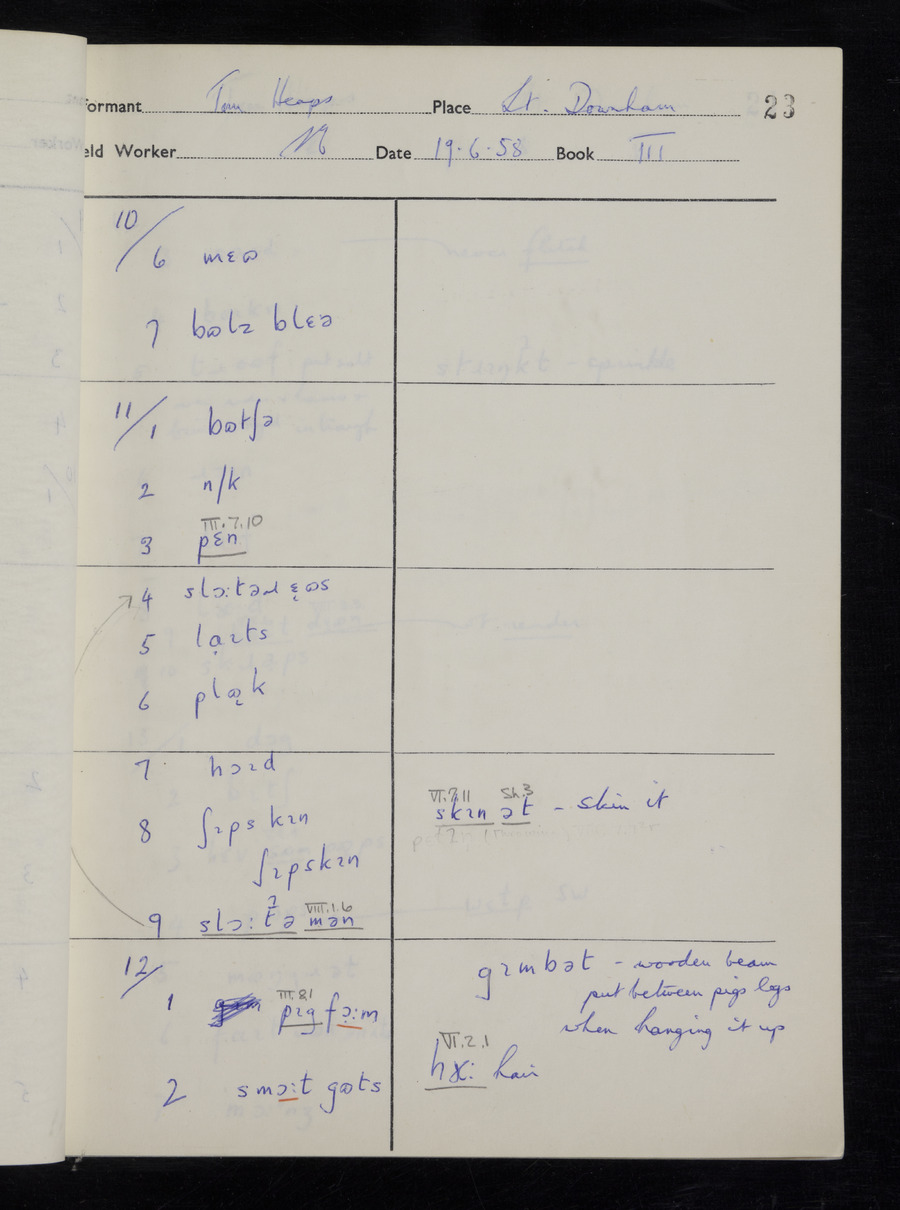 formant Tom Heaps Place Lt. Downham 23
eld Worker Date 19·6·58 Book III
10/
6 mɛɷ
7 bɷlz blɛə
11/
1 bɷtʃə
2 n/k
III.7.10
3 pɛn
4 slɔ:təɹ ɛ̣ɷs
5 lạɪts
6 plɷ̨k
7 hɔɪd
8 ʃɪps kɪn
ʃɪpskɪn
VI.7.11 Sh.3
skɪn ət - skin it
VIII.1.6
9 slɔ:tʔə mən
12/
III.8.1
1 pɪg fɔ̣:m
2 smɔ:t gɷts
gɪmbət - wooden beam
put between pigs legs
when hanging it up
VI.2.1
hɤ: hair